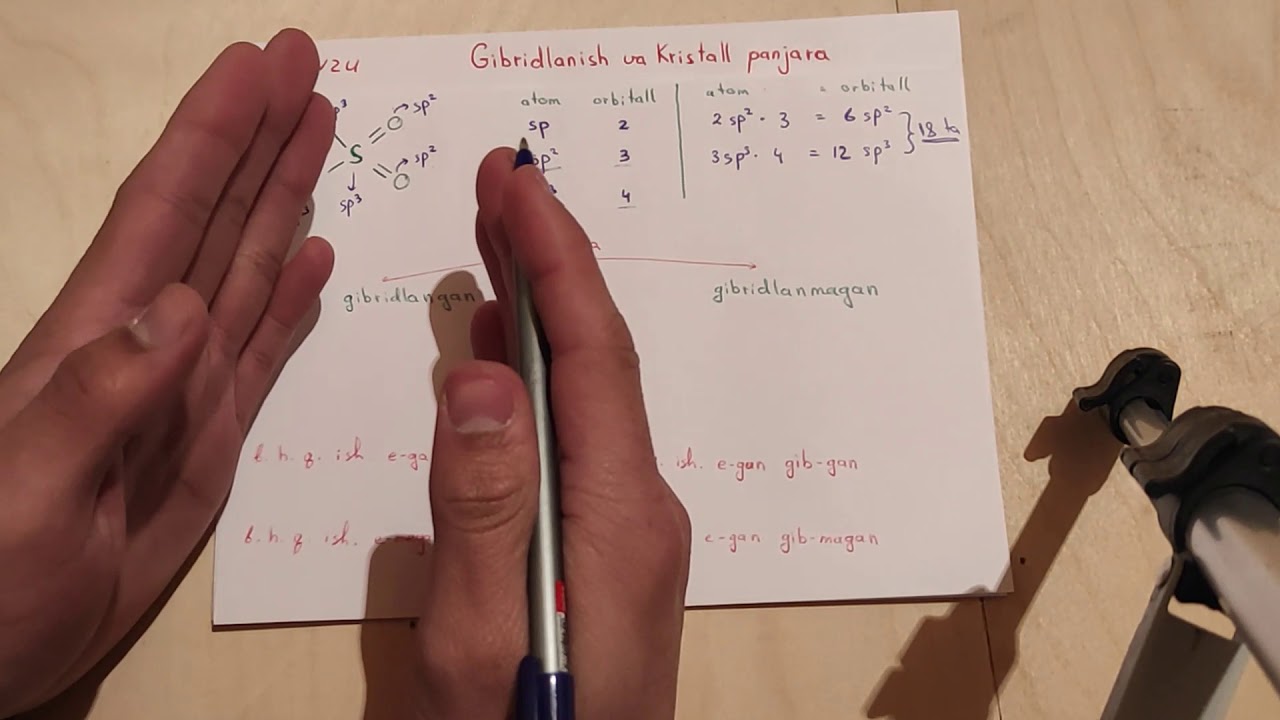 Gibridlanish va Kristall panjara
sp²
S
sp²
sp³
atom orbitall
sp 2
sp² 3
4
atom orbitall
2sp² · 3 = 6sp²
3sp³ · 4 = 12 sp³
18 ta
gibridlangan
gibridlanmagan
b. h. q. ish ish. e-gan gib-gan
b. h. q. ish. e-gan gib-magan